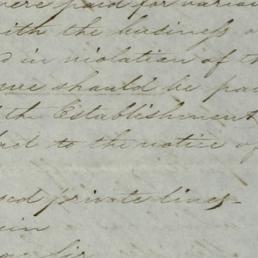 were paid for various
with the business o
d in violation of th
we should be pai
the Establishment
to the notice of
private lines